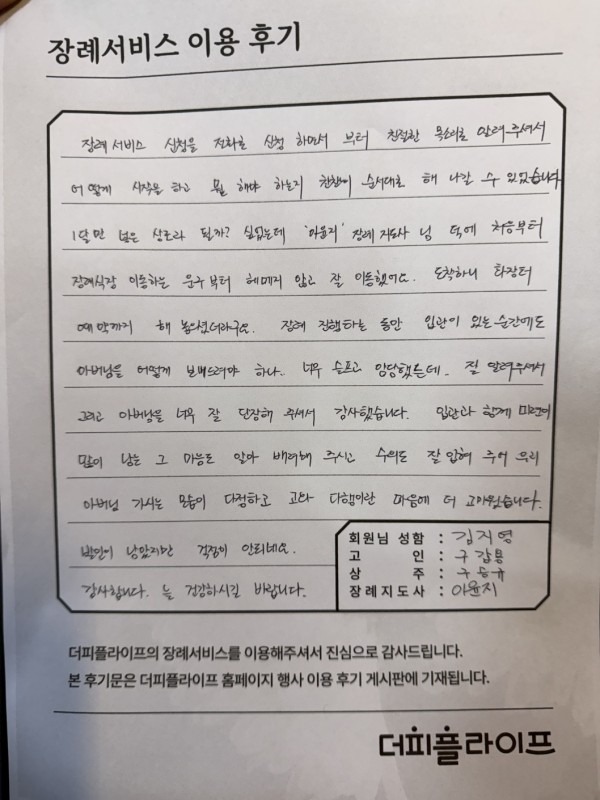 장례서비스 이용 후기
장례 서비스 신청을 전화로 신청 하면서 부터 친절한 목소리로 알려주셔서
어떻게 시작을 하고 뭘 해야 하는지 찬찬히 순서대로 해 나갈 수 있었습니다
1달만 넘은 상조라 될까? 싶었는데 '이윤지' 장례 지도사 님 덕에 처음부터
장례식장 이동하는 운구 부터 헤메지 않고 잘 이동했어요. 도착하니
까지 해 놓으셨더라구요. 장례 진행하는 동안 입관이 있는 순간에도
아버님을 어떻게 보내드려야 하나.. 너무 슬프고 막막했는데. 잘 알려주셔서
그리고 아버님을 너무 잘 단장해 주셔서 감사했습니다. 입관과 함께 미련이
많이 남는 그 마음도 알아 배려해 주시고 수의도 잘 입혀 주어 우리
아버님 가시는 모습이 다정하고 고와 다행이란 마음에 더 고마웠습니다.
발인이 남았지만 걱정이 안되네요.
감사합니다. 늘 건강하시길 바랍니다.
회원님 성함 : 김지영
고 인 : 구갑용
상 주 : 구승규
장례지도사 : 이윤지
더피플라이프의 장례서비스를 이용해주셔서 진심으로 감사드립니다.
본 후기문은 더피플라이프 홈페이지 행사 이용 후기 게시판에 기재됩니다.
더피플라이프